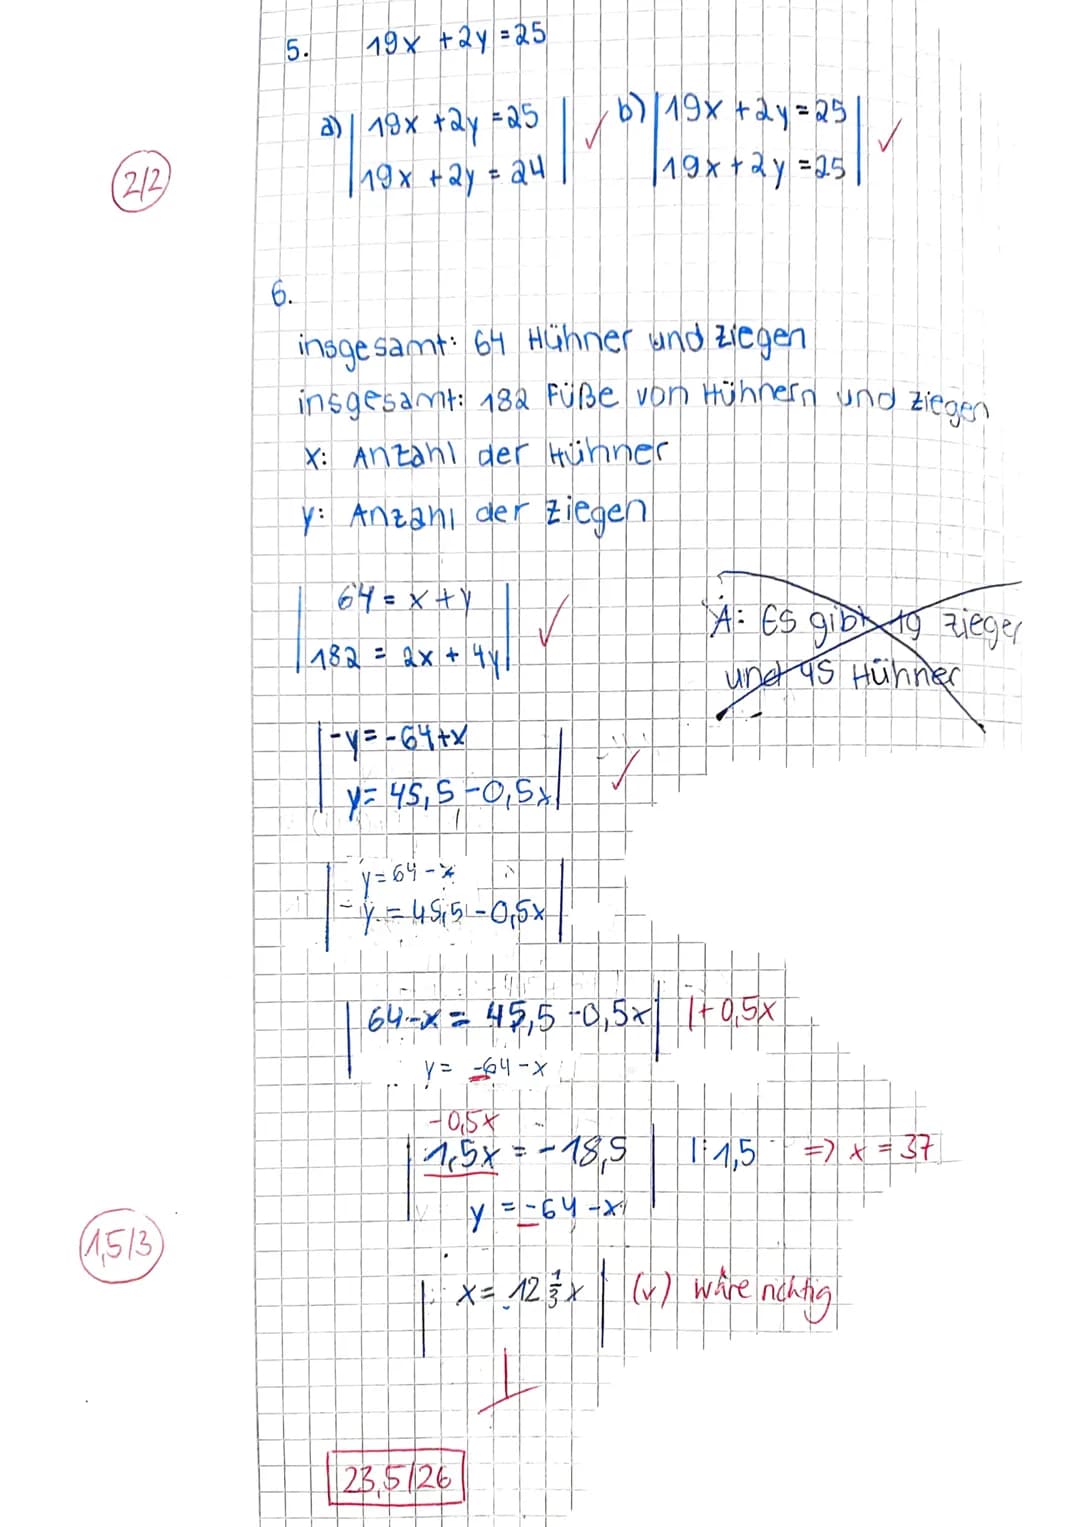 5. 19x +2y = 25
a) | 19x +2y = 25 | ✓ b) | 19x +2y = 25 | ✓
| 19x +2y = 24 | | 19x +2y = 25 |
2/2
6.
insgesamt: 64 Hühner und Ziegen
insgesamt: 182 Füße von Hühnern und Ziegen
x: Anzahl der Hühner
y: Anzahl der Ziegen
| 64 = x + y | ✓
| 182 = 2x + 4y |
A: Es gibt 19 Ziegen
und 45 Hühner
| -y = -64+x |
| y = 45,5 -0,5x | ✓
| y = 64 - x |
| y = 45,5 - 0,5x |
| 64-x = 45,5 -0,5x | |+0,5x
y = -64 - x
-0,5x
| 1,5x = -18,5 | |:1,5 => x = 37
y = -64 -x
1,5/3
| x = 12 1/3 x | (✓) wäre richtig
23,5/26